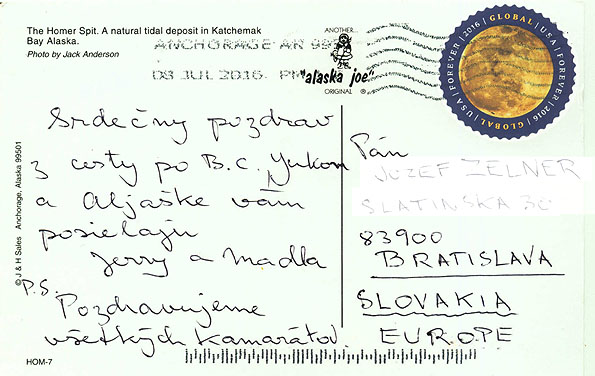 The Homer Spit. A natural tidal deposit in Katchemak
Bay Alaska.
Photo by Jack Anderson
ANOTHER...
"alaska joe"
ORIGINAL ®
ANCHORAGE AK 995
08 JUL 2016 PM
GLOBAL | USA | FOREVER | 2016 | GLOBAL | USA | FOREVER | 2016
Srdečný pozdrav
z cesty po B.C. Yukon
a Aljaške vám
posielajú
Jerry a Madla
P.S.
Pozdravujeme
všetkých kamarátov.
Pán
JOZEF ZELNER
SLATINSKA 30
83900
BRATISLAVA
SLOVAKIA
EUROPE
© J & H Sales Anchorage, Alaska 99501
HOM-7